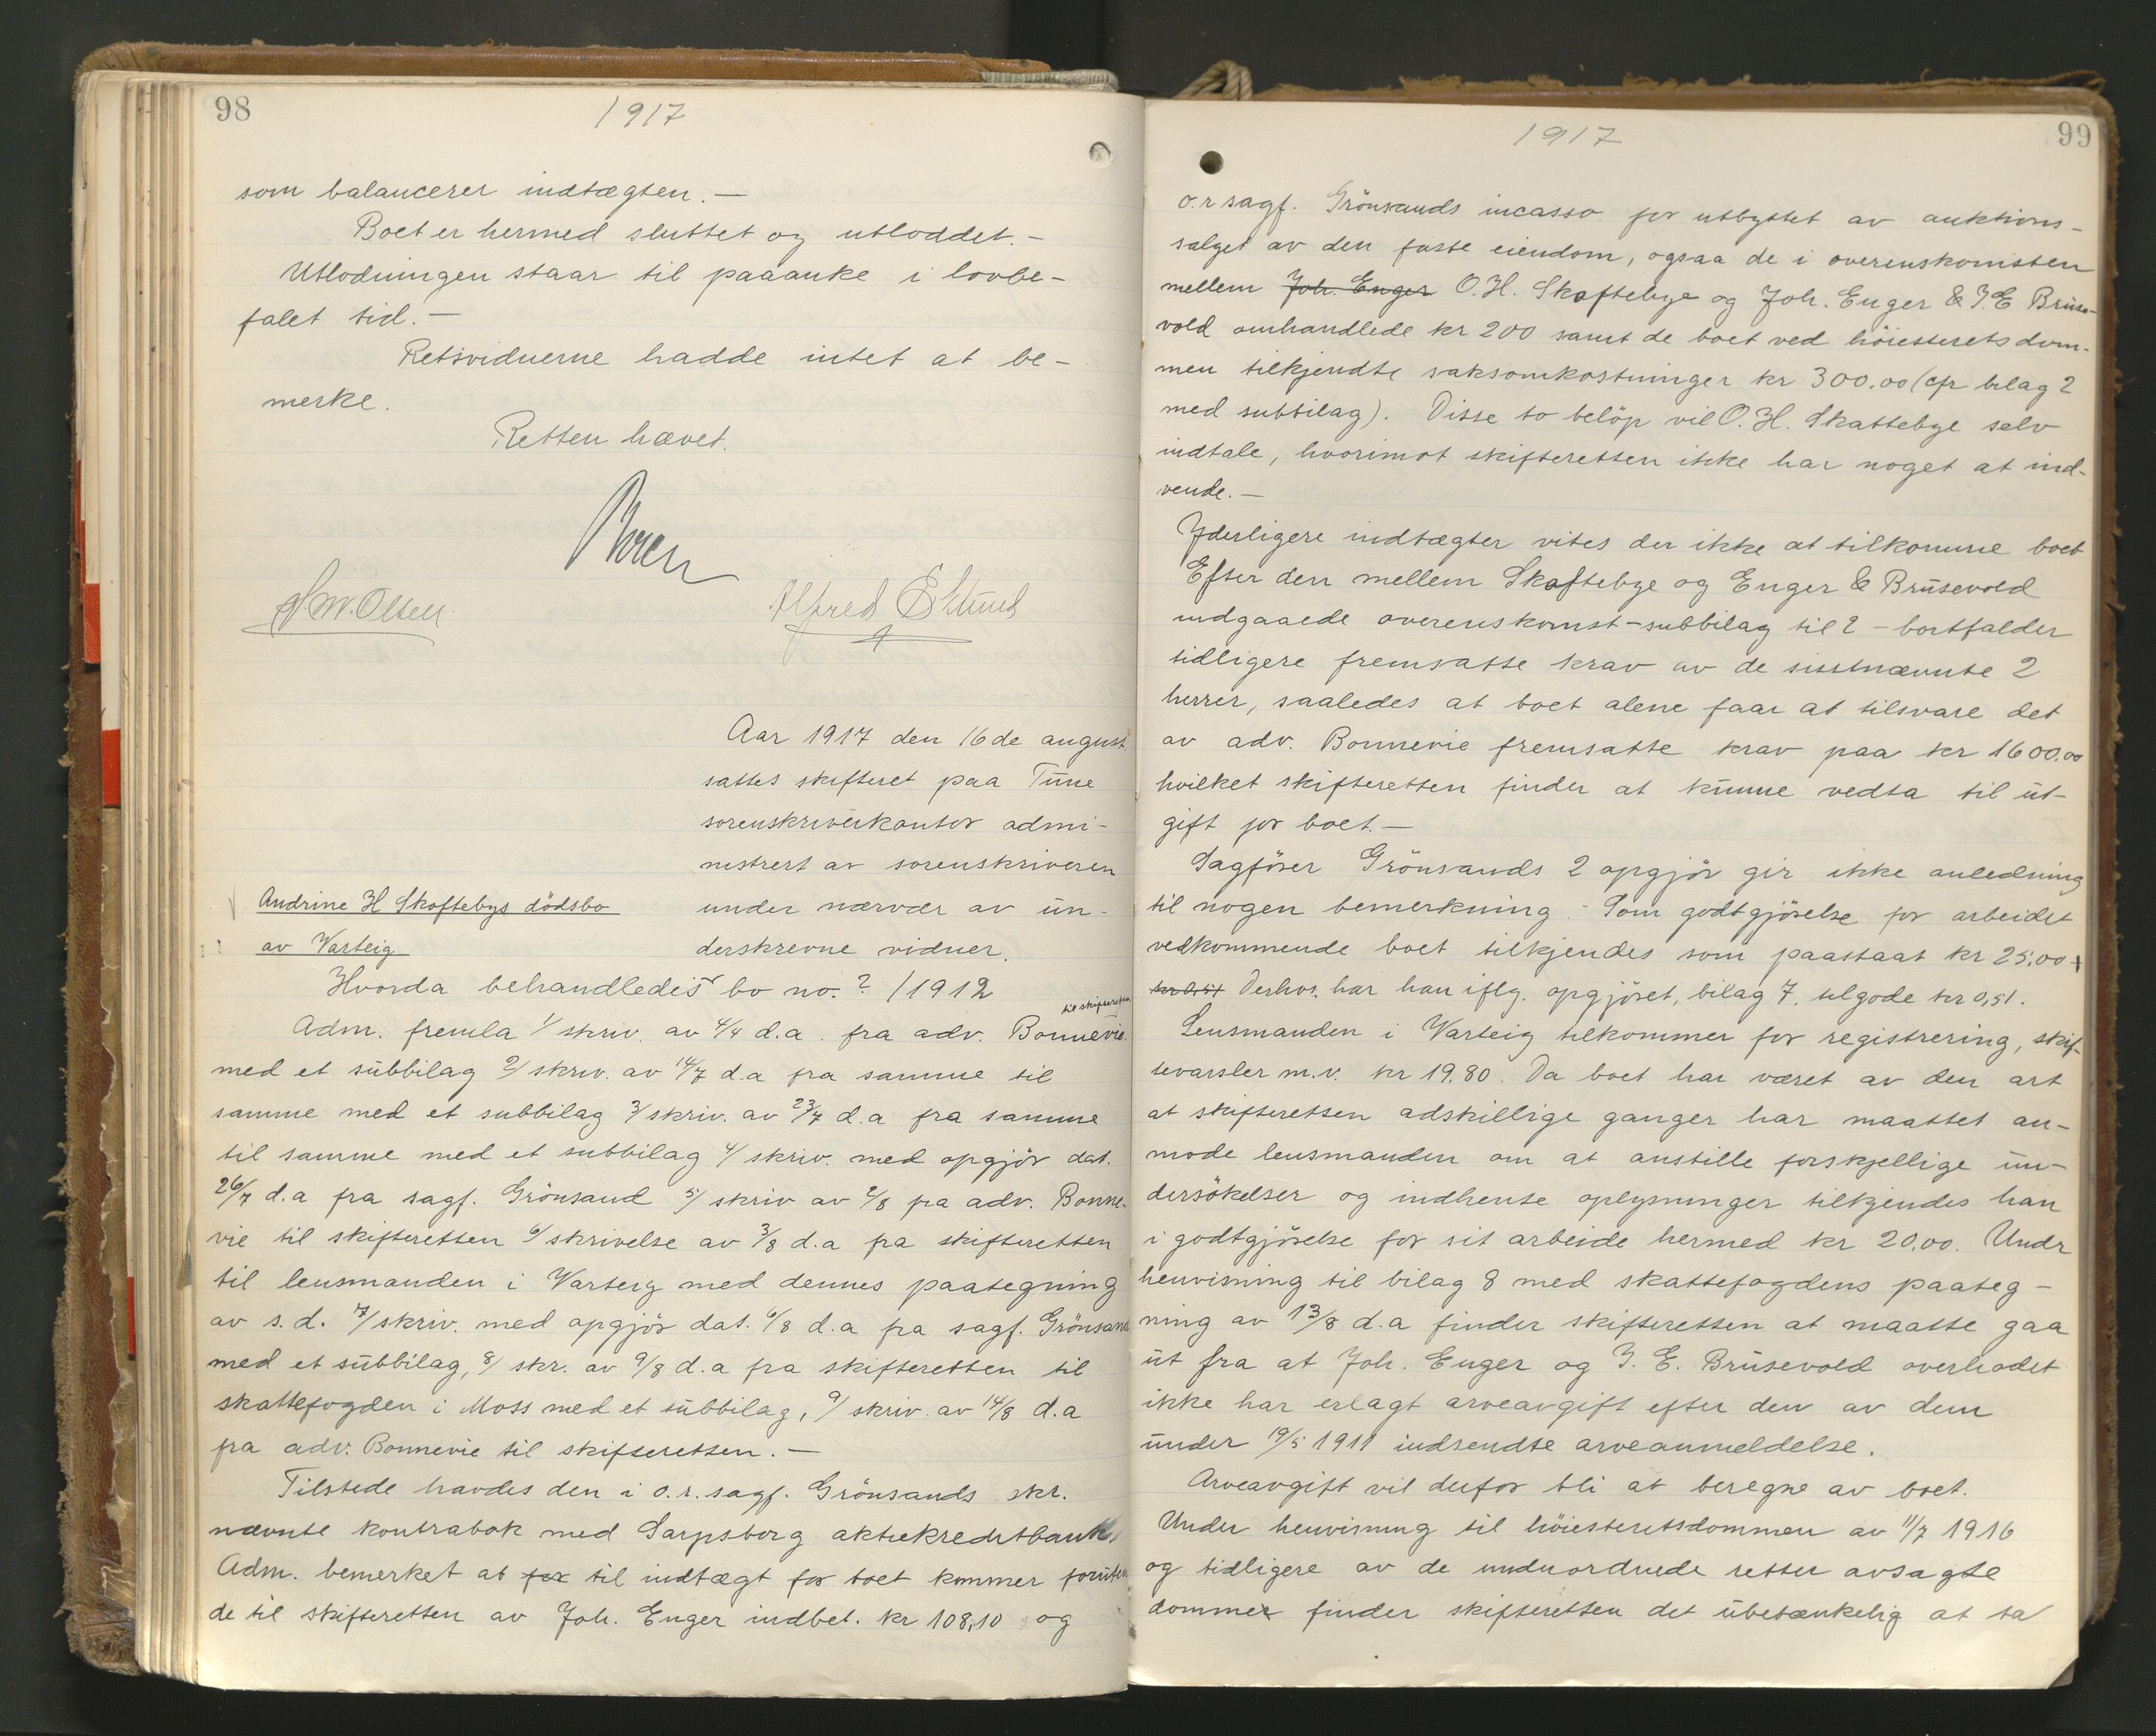 98
1917
som balancerer indtægten. —
Boet er hermed sluttet og utloddet. –
Utlodningen staar til paaanke i lovbe-
falet tid. —
Retsvidnerne hadde intet at be-
merke.
Retten hævet.
Alfred
Aar 1917 den 16de august
sattes skifteret paa Tune
sorenskriverkontor admi-
nistrert av sorenskriveren
under nærvær av un-
derskrevne vidner.
Andrine H Skoftebys dödsbo
av Varteig
Hvorda behandledes bo no. ? / 1912
Adm. fremla 1/ skriv. av 4/4 d.a. fra adv. Bonnevie til skifteretten
med et subbilag 2/ skriv. av 14/7 d.a fra samme til
samme med et subbilag 3/ skriv. av 23/7 d.a fra samme
til samme med et subbilag 4/ skriv. med opgjör dat.
26/7 d.a fra sagf. Grönsand 5/ skriv av 2/8 fra adv. Bonne-
vie til skifteretten 6/ skrivelse av 3/8 d.a fra skifteretten
til lensmanden i Varteig med dennes paategning
av s.d. 7/ skriv. med opgjör dat. 6/8 d.a fra sagf. Grönsand
med et subbilag, 8/ skr. av 9/8 d.a fra skifteretten til
skattefogden i Moss med et subbilag, 9/ skriv. av 14/8 d.a
fra adv. Bonnevie til skifteretten. —
Tilstede havdes den i o.r. sagf. Grönsands skr.
nævnte kontrabok med Sarpsborg aktiekreditbank.
Adm. bemerket at for til indtægt for boet kommer foruten
de til skifteretten av Joh. Enger indbet. kr 108,10 og
99
1917
o.r sagf. Grönsands incasso for utbyttet av auktions-
salget av den faste eiendom, ogsaa de i overenskomsten
mellem Joh. Enger O.H. Skoftebye og Joh. Enger & I.E Bruse-
vold omhandlede kr 200 samt de boet ved höiesteretsdom-
men tilkjendte saksomkostninger kr 300.00 (cfr bilag 2
med subbilag). Disse to belöp vil O.H. Skattebye selv
indtale, hvorimot skifteretten ikke har noget at ind-
vende. —
Yderligere indtægter vites der ikke at tilkomme boet
Efter den mellem Skoftebye og Enger & Brusevold
indgaaede overenskomst – subbilag til 2 – bortfalder
tidligere fremsatte krav av de sistnævnte 2
herrer, saaledes at boet alene faar at tilsvare det
av adv. Bonnevie fremsatte krav paa kr 1600.00
hvilket skifteretten finder at kunne vedta til ut-
gift for boet. —
Sagförer Grönsands 2 opgjör gir ikke anledning
til nogen bemerkning. Som godtgjörelse for arbeidet
vedkommende boet tilkjendes som paastaat kr 25.00
kr 0.51 Derhos har han iflg. opgjöret, bilag 7. tilgode kr 0,51.
Lensmanden i Varteig tilkommer for registrering, skif-
tevarsler m.v. kr 19.80. Da boet har været av den art
at skifteretten adskillige ganger har maattet an-
mode lensmanden om at anstille forskjellige un-
dersökelser og indhente oplysninger tilkjendes han
i godtgjörelse for sit arbeide hermed kr 20.00. Undr
henvisning til bilag 8 med skattefogdens paateg-
ning av 13/8 d.a finder skifteretten at maatte gaa
ut fra at Joh. Enger og I. E. Brusevold overhodet
ikke har erlagt arveavgift efter den av dem
under 19/5 1911 indsendte arveanmeldelse.
Arveavgift vil derfor bli at beregne av boet.
Under henvisning til höiesteretsdommen av 11/7 1916
og tidligere av de underordnede retter avsagte
dommer finder skifteretten det ubetænkelig at ta